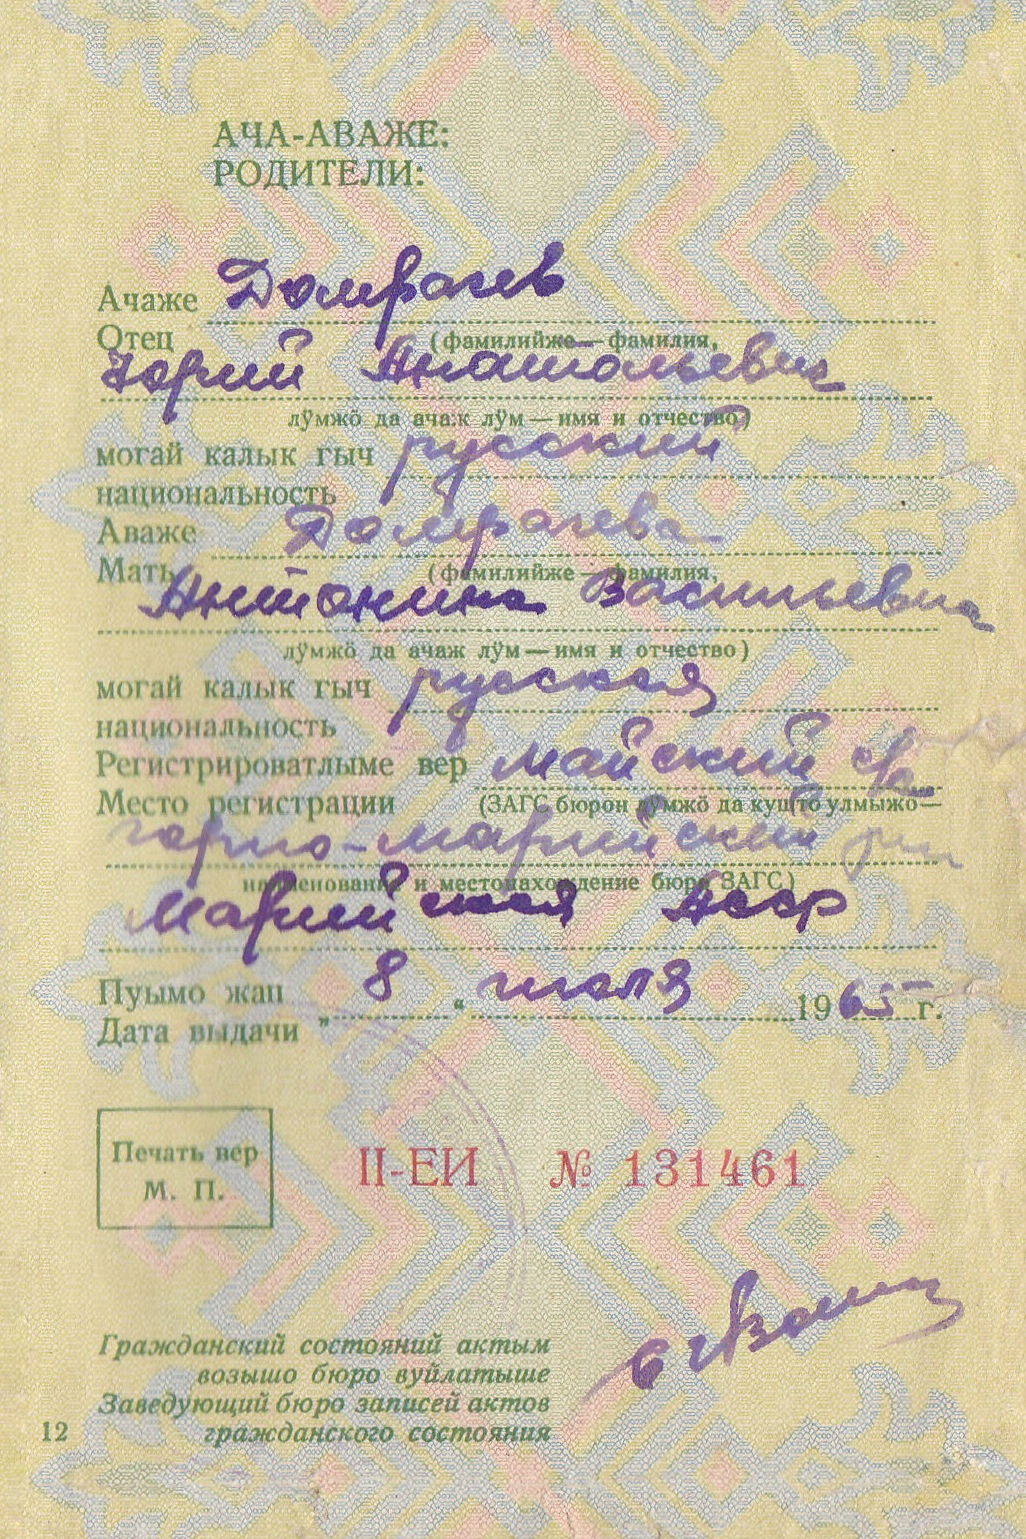 АЧА-АВАЖЕ:
РОДИТЕЛИ:
Ачаже Домрачев
Отец (фамилийже—фамилия,
Юрий Анатольевич
лӱмжӧ да ачаж лӱм—имя и отчество)
могай калык гыч русский
национальность
Аваже Домрачева
Мать (фамилийже—фамилия,
Антонина Васильевна
лӱмжӧ да ачаж лӱм—имя и отчество)
могай калык гыч русская
национальность
Регистрироватлыме вер Майский с/с
Место регистрации (ЗАГС бюрон лӱмжӧ да кушто улмыжо—
Горно-Марийский
наименование и местонахождение бюро ЗАГС)
Марийская АССР
Пуымо жап 8 июля 1965 г.
Дата выдачи „ “
Печать вер
М. П.
II-ЕИ № 131461
Гражданский состояний актым
возышо бюро вуйлатыше
Заведующий бюро записей актов
гражданского состояния
12